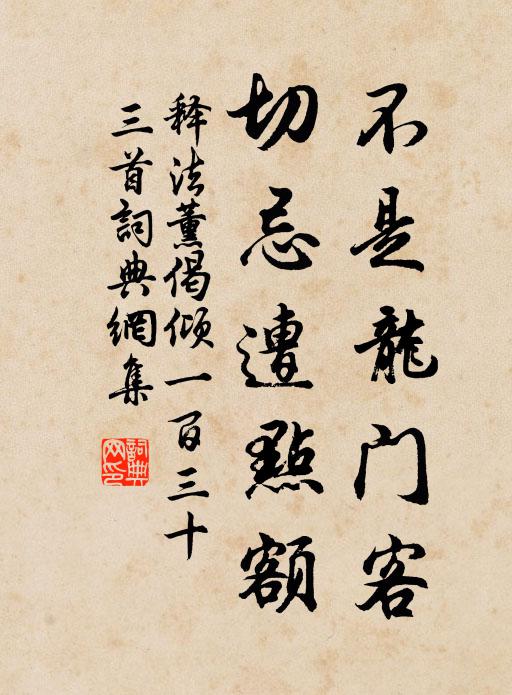 不是龍门客
切忌遭點額
释法薰偈倾一百三十
三首詞典網集
詞典網印